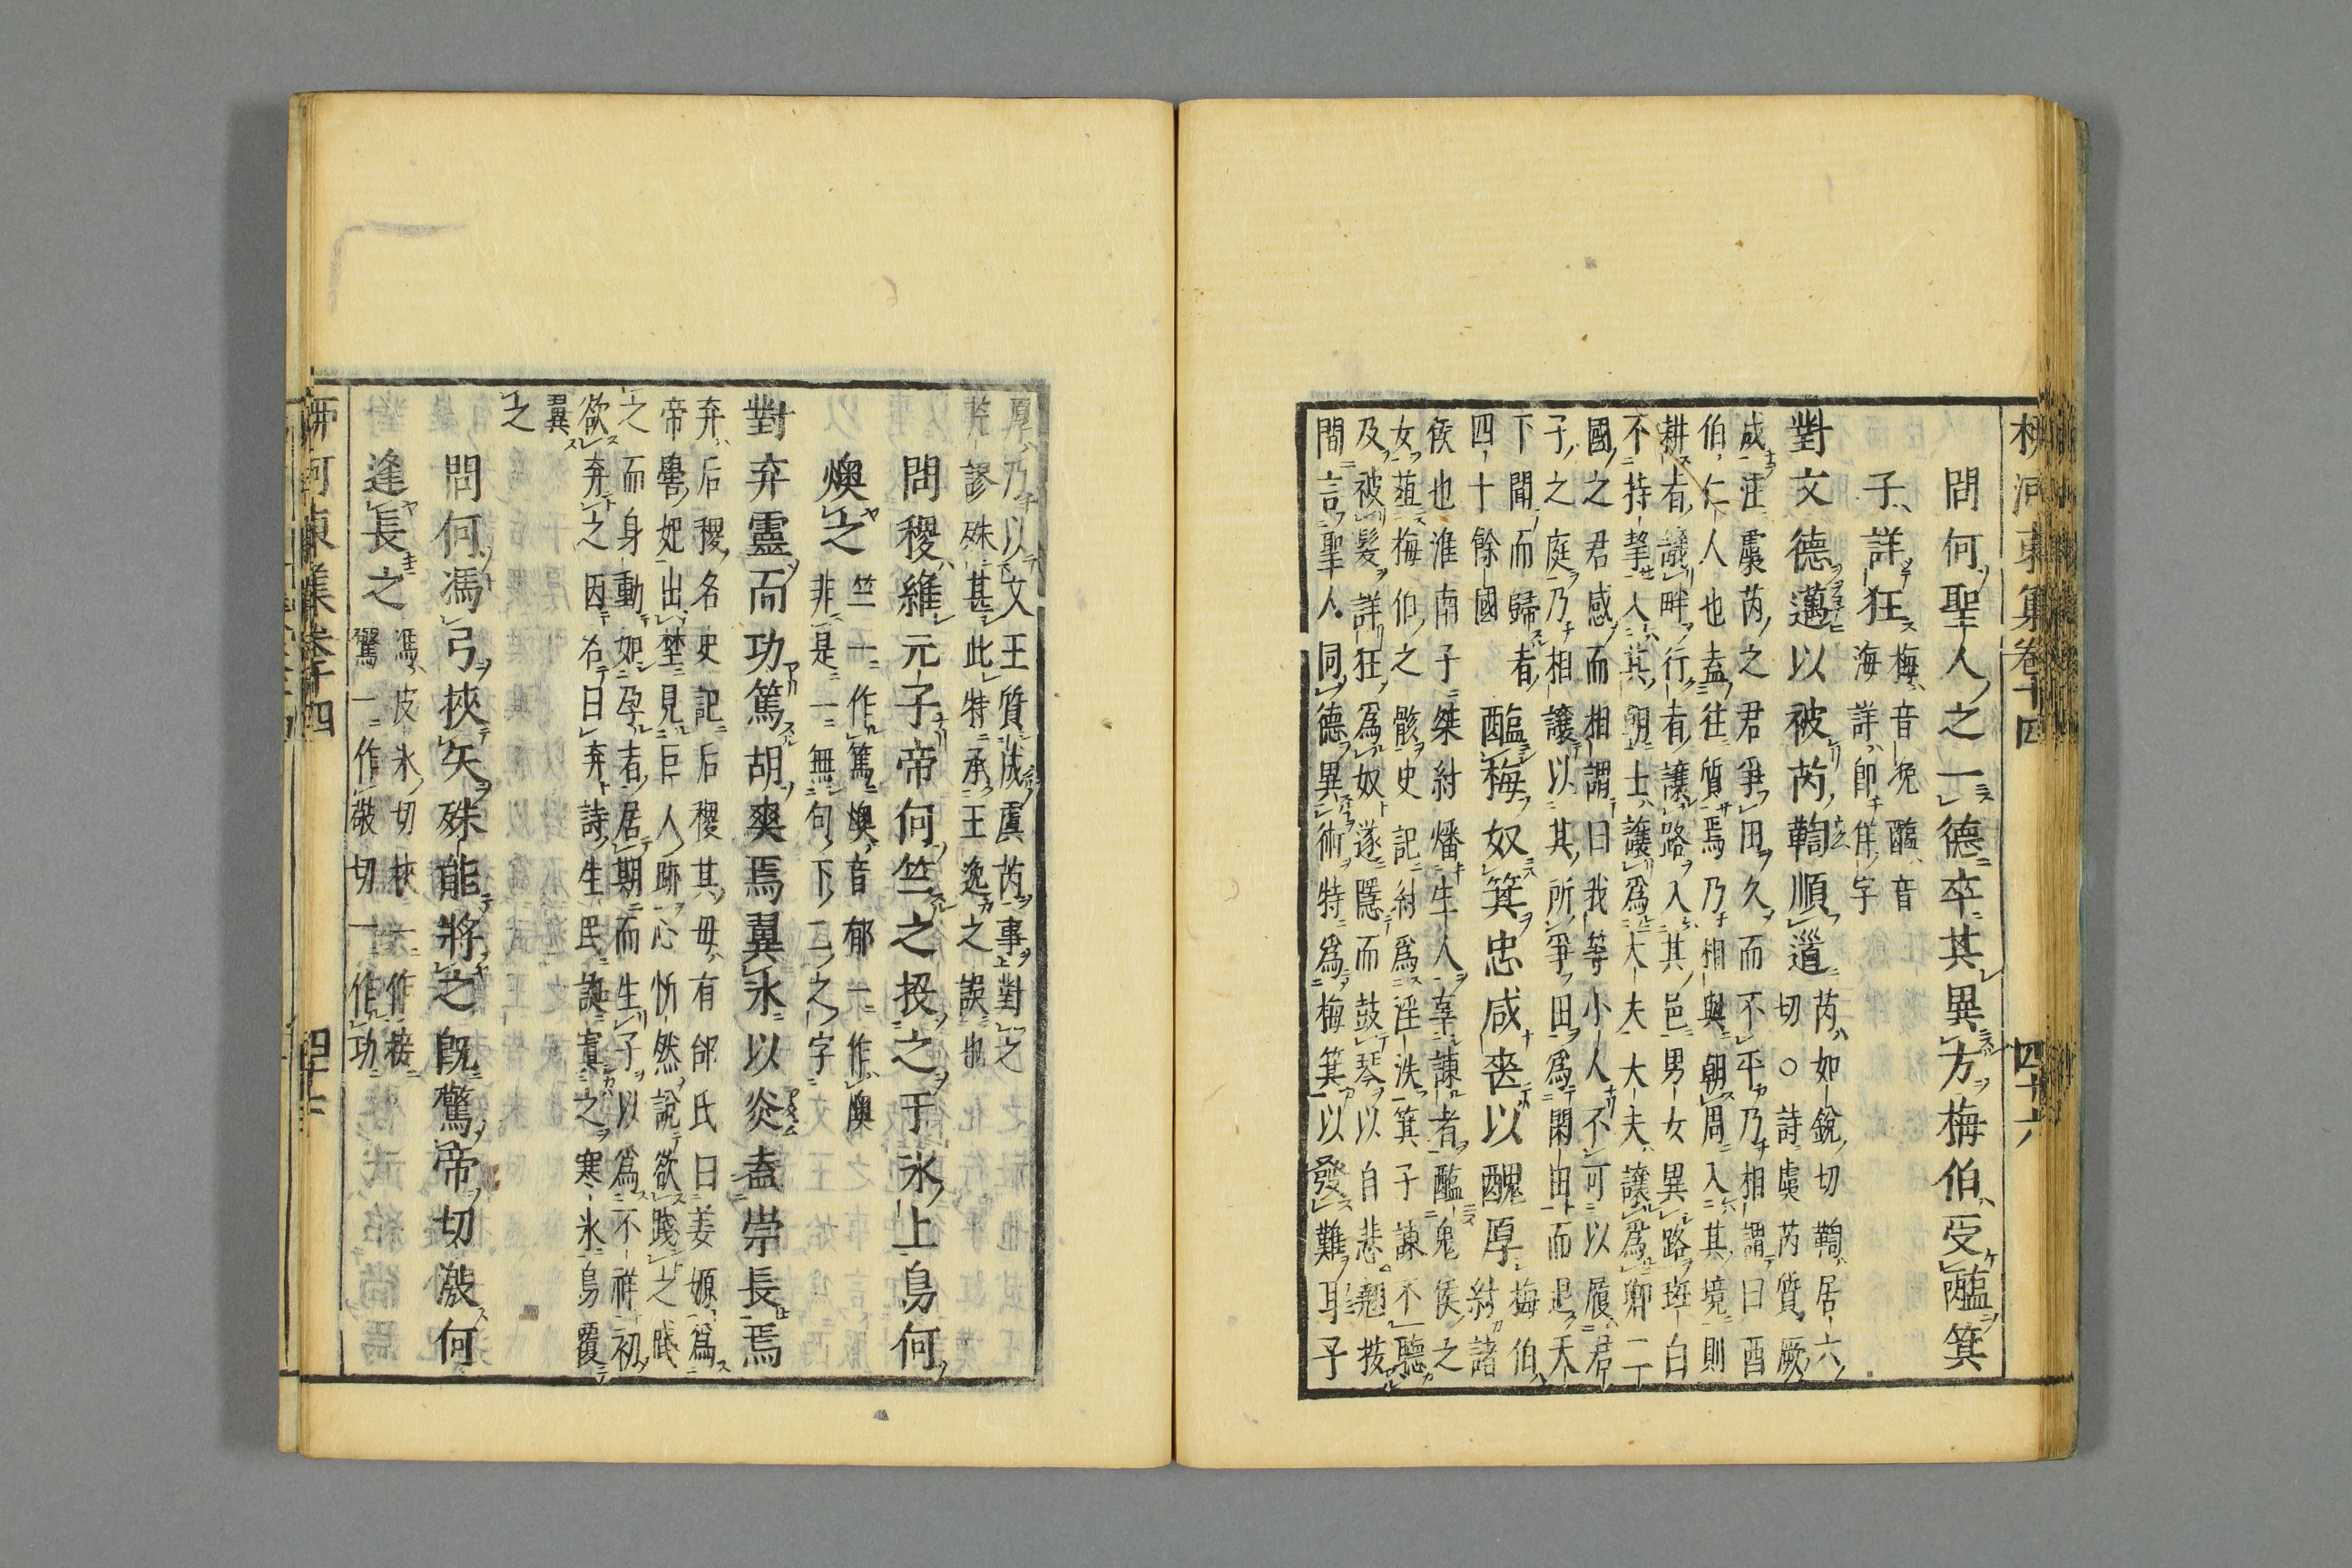 柳河東集卷十四 四十六
問何聖人之一德卒其異方梅伯受醢箕
子詳狂
梅音浼醢音
海詳即佯字
對文德邁以被芮鞫順道
芮如銳切鞫居六
切○詩虞芮質厥
成注虞芮之君爭田久而不平乃相謂曰西
伯仁人也盍往質焉乃相與朝周入其境則
耕者讓畔行者讓路入其邑男女異路斑白
不持挈入其朝士讓爲大夫大夫讓爲卿二
國之君感而相謂曰我等小人不可以履君
子之庭乃相讓以其所爭田爲閑田而退天
下聞而歸者
四十餘國
醢梅奴箕忠咸喪以醜厚
梅伯
紂諸
侯也淮南子桀紂燔生人辜諫者醢鬼侯之
女葅梅伯之骸史記紂爲淫泆箕子諫不聽
及被髮詳狂爲奴遂隱而鼓琴以自悲
問言聖人同德異術特爲梅箕以發難耳子
厚乃以文王質成虞芮事對之
謬殊甚此特承王逸之誤也
問稷維元子帝何竺之投之于氷上鳥何
燠之
竺一作篤燠音郁一作懊
非是一無句下二之字
對弃靈而功篤胡爽焉翼氷以炎盍崇長焉
弃后稷名史記后稷其母有邰氏曰姜嫄爲
帝嚳妃出埜見巨人跡心忻然說欲踐之踐
之而身動如孕者居期而生子以爲不祥初
欲弃之因名曰弃詩生民誕寘之寒氷鳥覆
翼
之
問何馮弓挾矢殊能將之旣驚帝切激何
逢長之
馮皮氷切挾一作接
驚一作敬切一作功
柳河東集卷十四